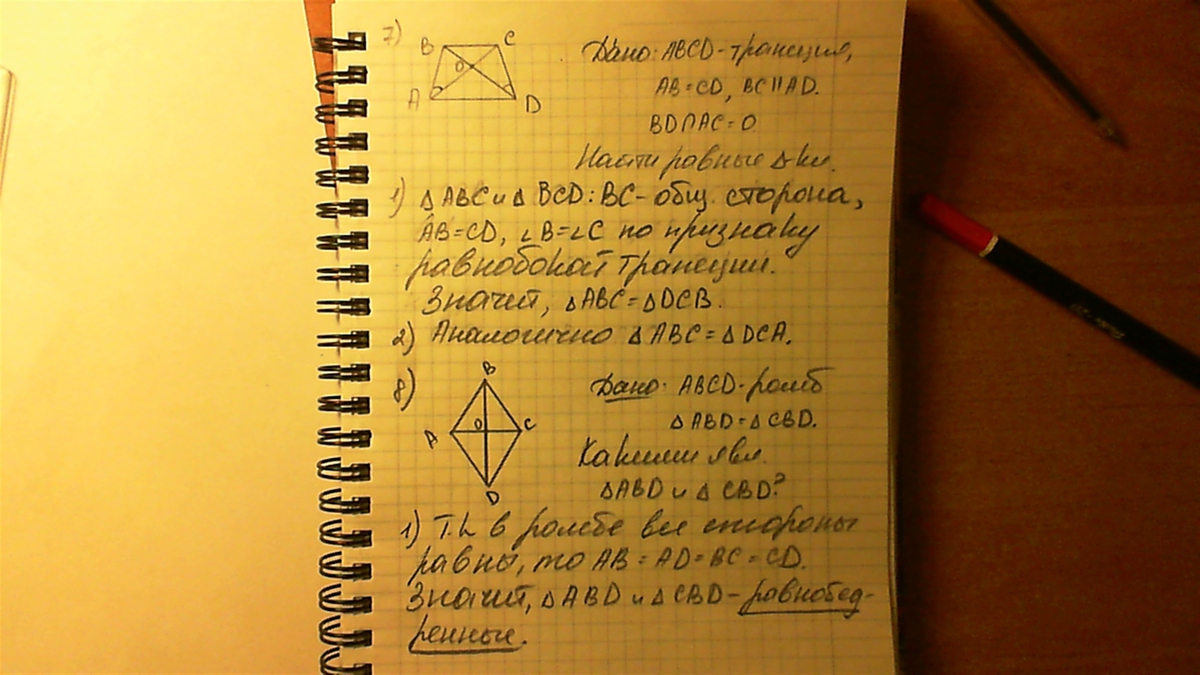 7)
B C
O
A D
Дано: ABCD - трапеция,
AB = CD, BC || AD.
BD ∩ AC = O
Найти равные Δ-ки.
1) Δ ABC и Δ BCD: BC - общ. сторона,
AB = CD, ∠B = ∠C по признаку
равнобокой трапеции.
Значит, Δ ABC = Δ DCB.
2) Аналогично Δ ABC = Δ DCA.
8)
B
A O C
D
Дано: ABCD - ромб
Δ ABD = Δ CBD.
Какими явл.
Δ ABD и Δ CBD?
1) Т.к в ромбе все стороны
равны, то AB = AD = BC = CD.
Значит, Δ ABD и Δ CBD - равнобед-
ренные.